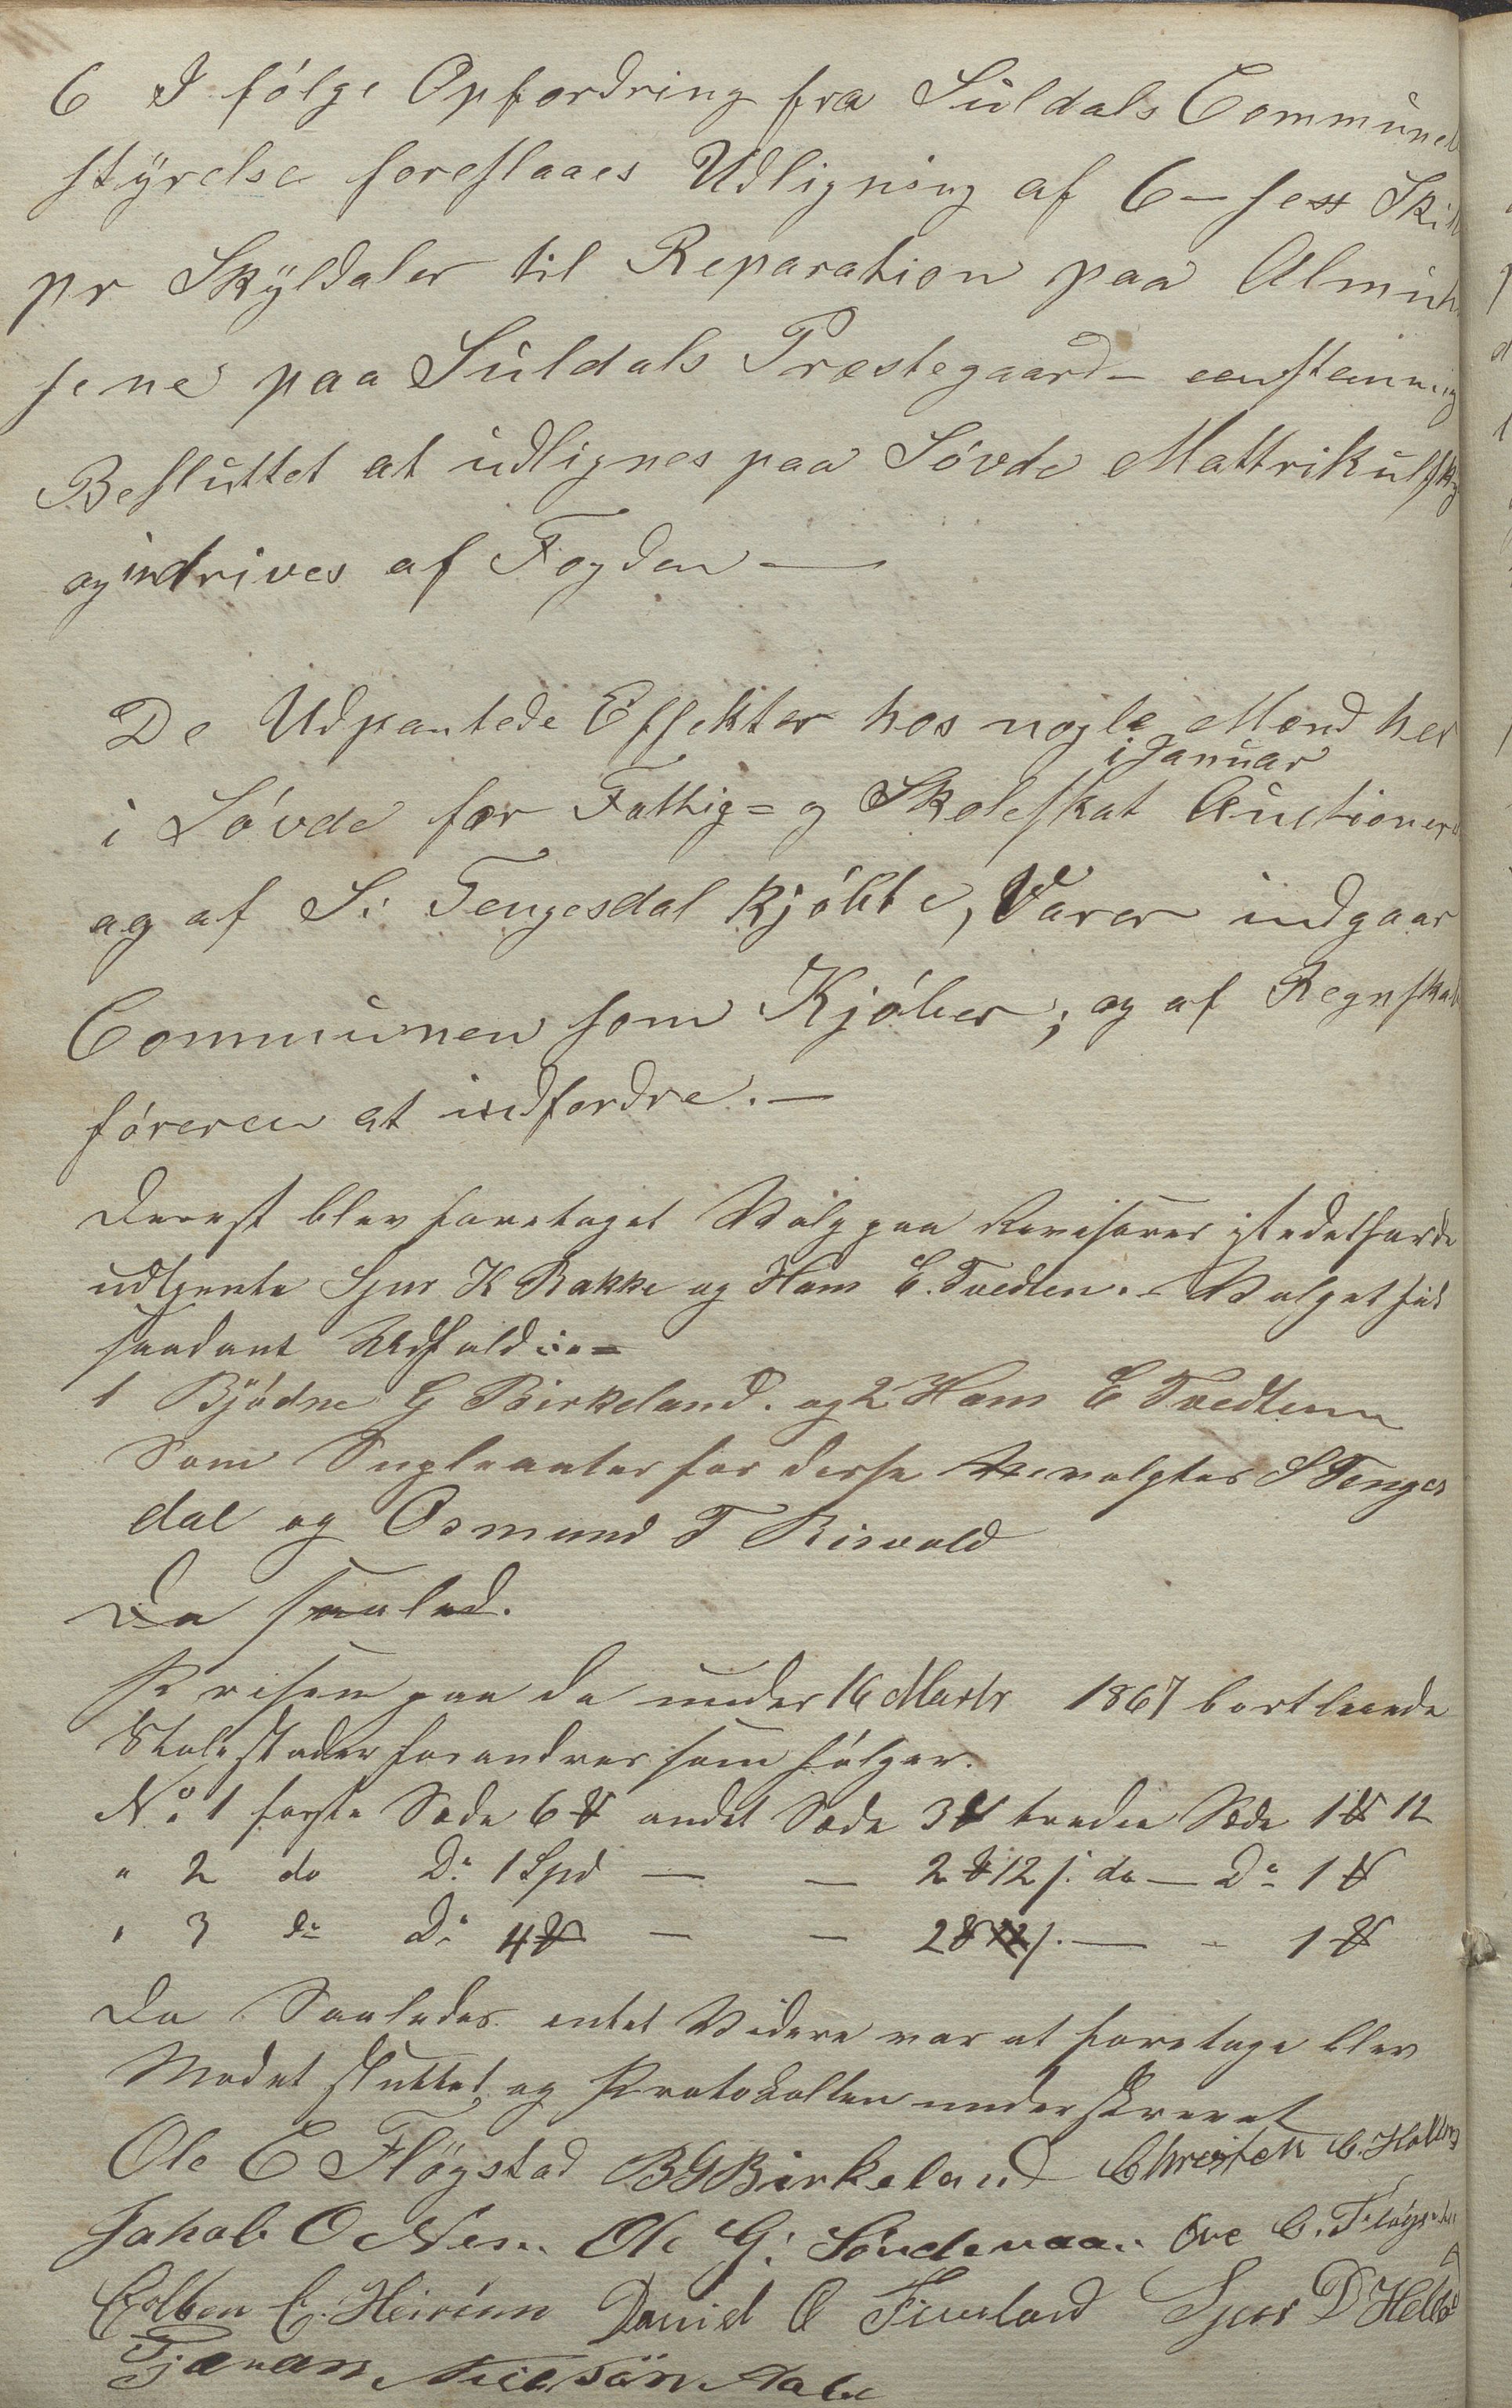 6 I følge Opfordring fra Suldals Commune
styrelse foreslaaes Udligning af 6 – sex Skil
pr Skyldaler til Reparation paa Almu
sene paa Suldals Præstegaard – eenstemmig
Besluttet at udlignes paa Søvde Mattrikulsky
og inddrives af Fogden —
De Udpantede Effekter hos nogle Mænd her
i Januar
i Søvde for Fattig= og Skoleskat Auctioner
og af S: Tengesdal kjøbte, Varer indgaar
Communen som Kjøber; og af Regnskab
føreren at indfordre. –
Derest blev foretaget Valg paa Revisorer istedetfor de
udtjente Sjur K Bakke og Hans E. Tvedten. – Valget fik
saadant Udfald :=
1 Bjødne G Birkeland. og 2 Hans E Tvedtenn
Som Supleanter for disse valgtes S Tenges
dal og Osmund T Risvold
Da saaled.
Prisen paa de under 16 Marts 1867 bortleiede
Stolestader forandres som følger.
No. 1 første Sæde 6 ℔ andet Sæde 3 ℔ tredie Sæde 1 ℔ 12
" 2 do Do 1 Spd — — 2 ℔ 12 s. do — Do 1 ℔
" 3 do Do 4 ℔ — — 2 ℔ 12 s. — - 1 ℔
Da Saaledes intet Videre var at foretage blev
Mødet sluttet og Protokollen underskrevet
Ole E Fløgstad BG Birkeland Christen C.
Jakob O Nes. Ole G: Søndenaa. Ove C.
C. David O Sjur D
Nielsön